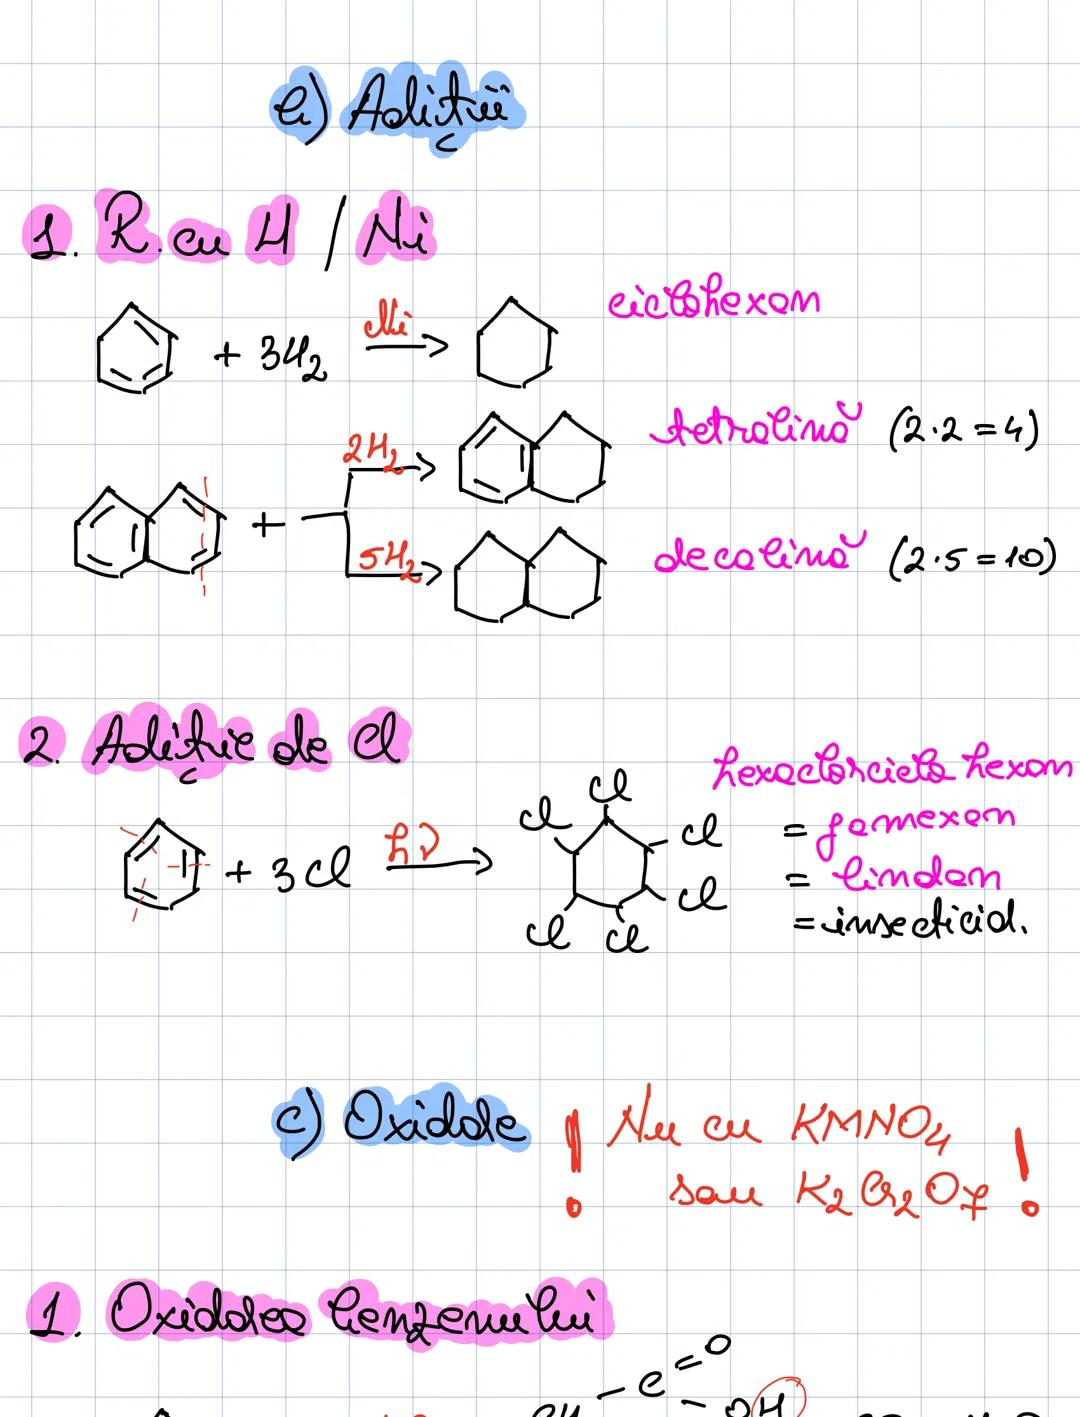 b) Adiții
1. R. cu H / Ni
+ 3H2 Ni → ciclohexan
2H2 → tetralină (2·2=4)
+
5H2 → decalină (2·5=10)
2. Adiție de Cl
+ 3Cl hν → Cl Cl Cl Cl Cl Cl
hexaclorciclohexan
= gamexan
= lindan
= insecticid.
c) Oxidare ! Nu cu KMNO4
sau K2Cr2O7 !
1. Oxidarea benzenului
- C = O
- OH